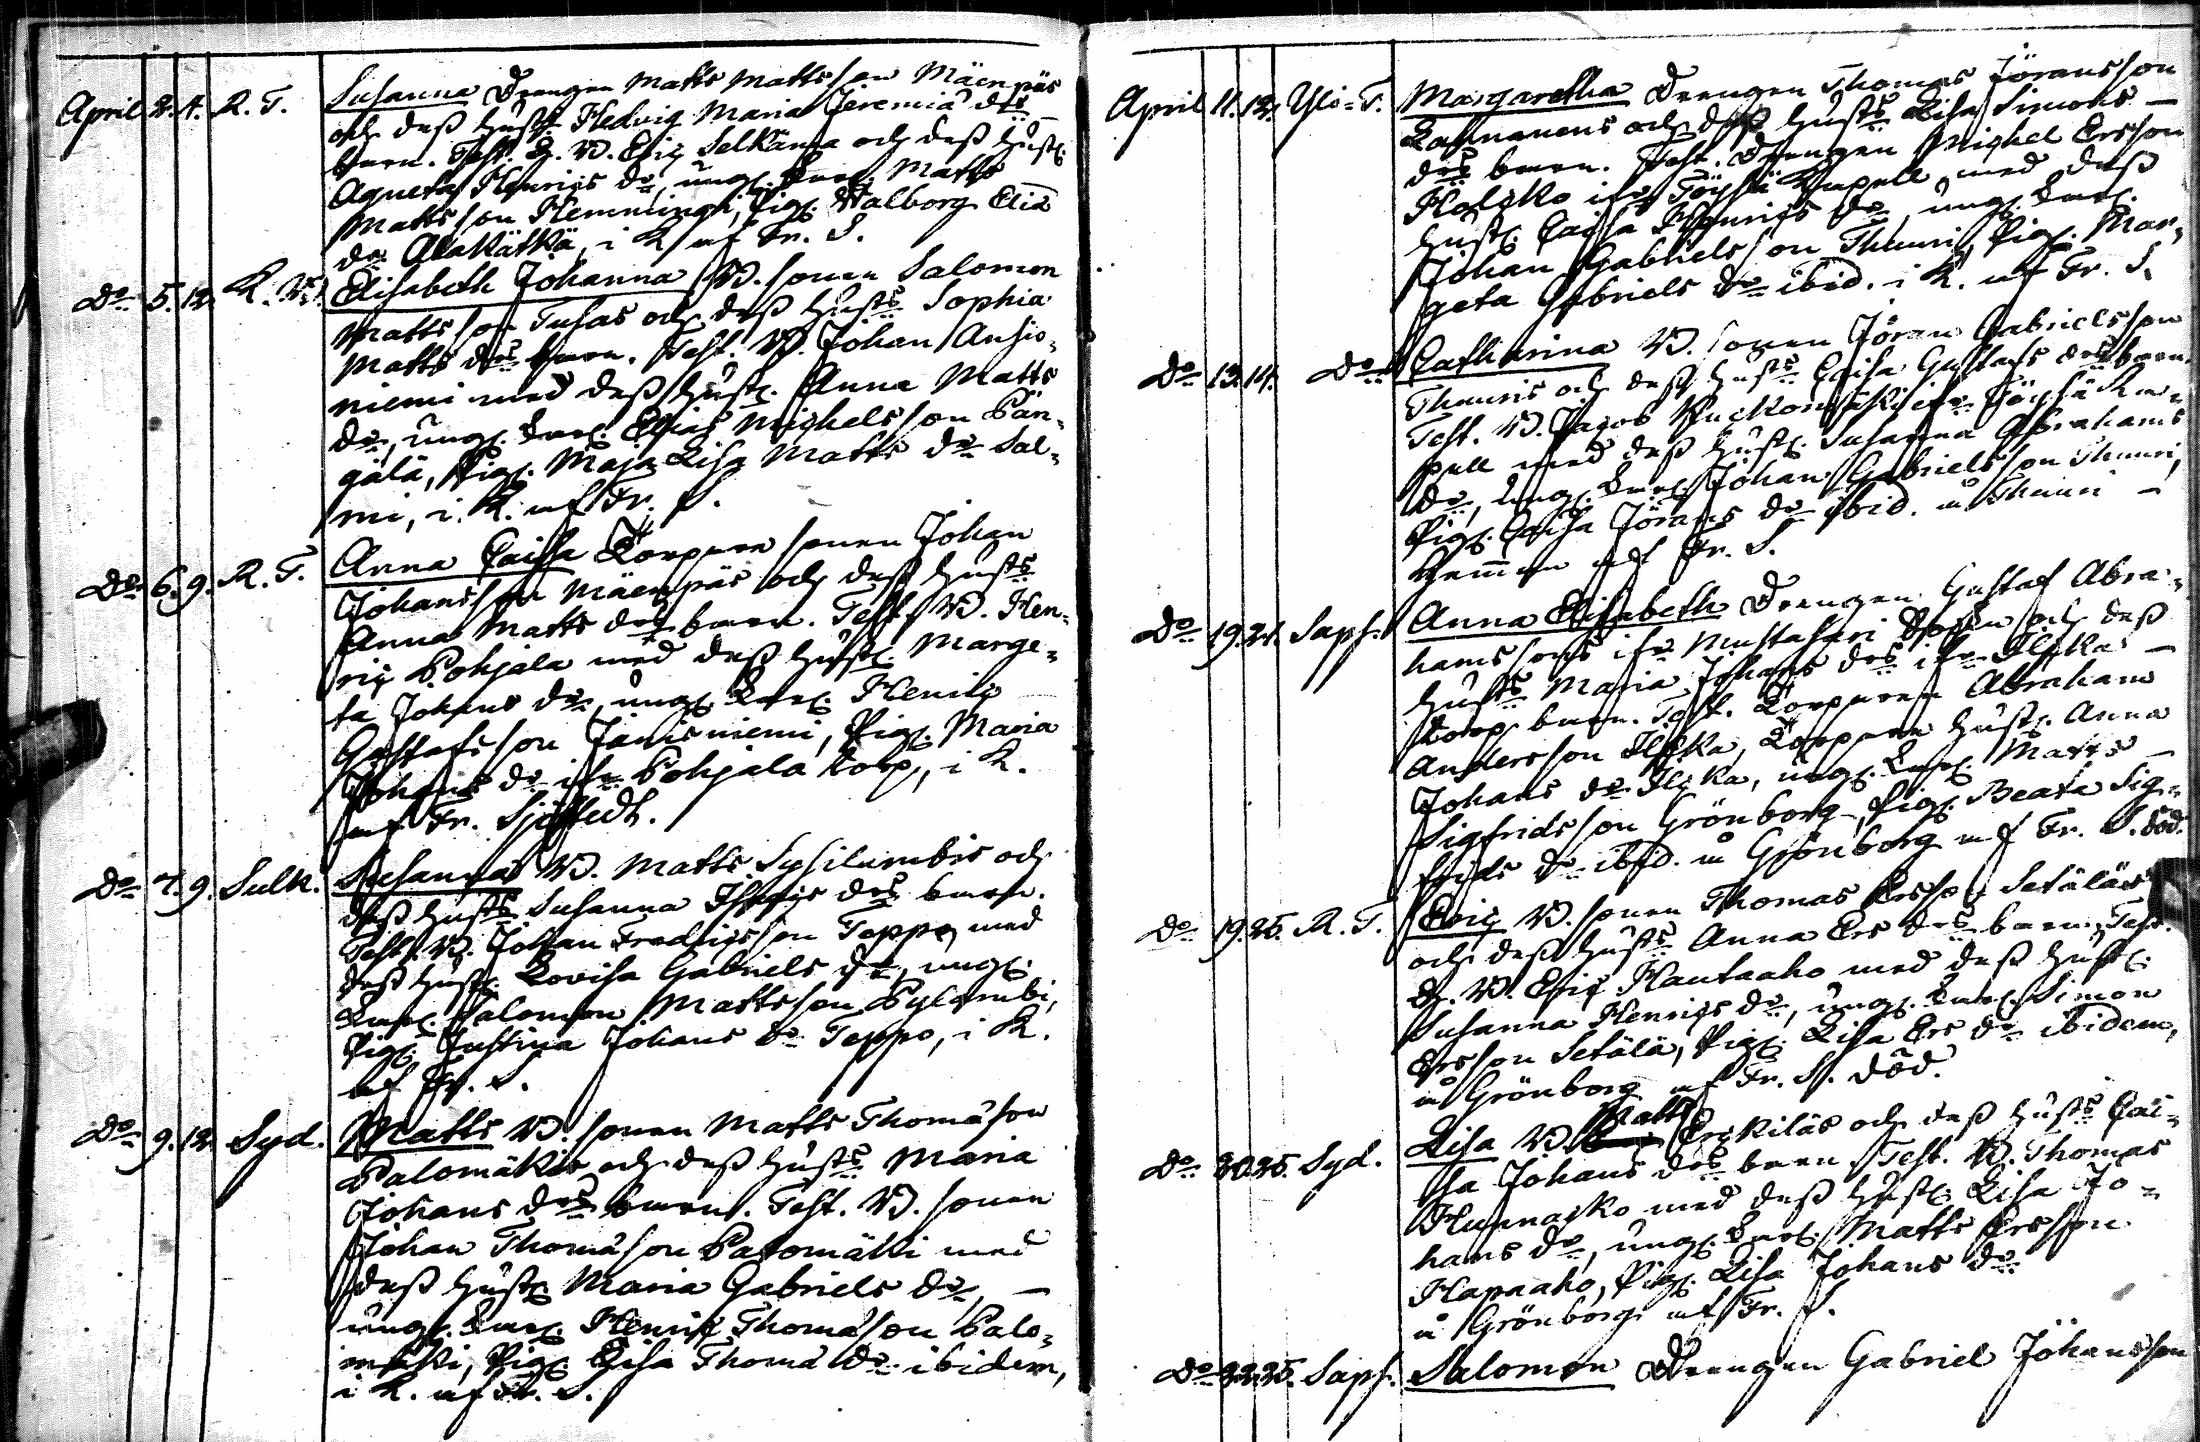 April 2. 4. R. T. Susanna Drengen Matts Mattsson Mäenpäs
och dess hust: Hedvig Maria Jeremiæ drs
barn. Test. B. W. Eric Selkänsa och dess hust:
Agneta Henrics dr, ung: Matts
Mattsson Hemminghi, Pig: Walborg Eliæ
dr Alakätkä, i K af Hr. S.
Do 5. 12. Elisabeth Johanna B. sonen Salomon
Mattsson Tusas och dess hust: Sophia
Matts drs barn. Test. B. Johan Ansio-
niemi med dess hust: Anna Matts
dr, ung: Elias Michelsson Pän-
gälä, Pig: Maja Lisa Matts dr Sal-
mi, i K. af Hr. S.
Do 6. 9. R. T. Anna Caisa Torpare sonen Johan
Johansson Mäenpäs och dess hust:
Anna Matts drs barn. Test. B. Hen-
ric Pohjala med dess hust: Marge-
ta Johans dr, ung: Henric
Gustafsson Janisniemi, Pig: Maria
Johans dr ifr Pohjala torp, i K.
af Hr. Sjöstedt.
Do 7. 9. Sulk. Susanna B. Matts Sysilumbis och
dess hust: Susanna drs barn.
Test. B. Johan Fredricsson Teppo med
dess hust: Lovisa Gabriels dr, ung:
Salomon Mattsson
Pig: Justina Johans dr Teppo, i K.
af Hr. S.
Do 9. 12. Syd. Matts B. sonen Matts Thomæson
Palomäkis och dess hust: Maria
Johans drs barn. Test. B. sonen
Johan Thomæson Palomäki med
dess hust: Maria Gabriels dr, –
ung: Henric Thomæson Palo-
mäki, Pig: Lisa Thomæ dr ibidem,
i K. af Hr. S.
April 11. 12. Yli-T. Margaretha Drengen Thomas Jöransson
och dess hust: Lisa Simons –
drs barn. Test. Drengen Michel Ersson
Holcko ifr Töysä Capell med dess
hust: Caisa Henrics dr, ung:
Johan Gabrielsson Thuuri, Pig: Mar-
geta Gabriels dr ibid. i K. af Hr. S.
Do 13. 14. Do Catharina B. sonen Jöran Gabrielsson
Thuuris och dess hust: Caisa Gustafs drs barn.
Test. B. Jacob ifr Töysä Ka-
pell med dess hust: Susanna Abrahams
dr, ung: Johan Gabrielsson Thuuri,
Pig: Caisa Jörans dr ibid. å Thuuri –
hemman af Hr. S.
Do 19. 21. Saps. Anna Elisabeth Drengen Gustaf Abra-
hamssons ifr Mustasari och dess
hust: Maria Johans drs ifr Ilcka –
torp barn. Test. Torparen Abraham
Andersson Ilcka, Torpare hust: Anna
Johans dr Ilcka, ung: Matts –
Sigfridsson Grönborg, Pig: Beata Sig-
frids dr ibid. å Grönborg af Hr. S. död.
Do 19. 25. R. T. Eric B. sonen Thomas Ersson Setäläs
och dess hust: Anna Ers drs barn. Test.
B. Eric Hautaaho med dess hust:
Susanna Henrics dr, ung: Simon
Ersson Setälä, Pig: Lisa Ers dr ibidem,
å Grönborg af Hr. S. död.
Do 20. 25. Syd. Lisa B. Matts Erckiläs och dess hust: Cai-
sa Johans drs barn. Test. B. Thomas
Hunnacko med dess hust: Lisa Jo-
hans dr, ung: Matts Ersson
Hapaaho, Pig: Lisa Johans dr
å Grönborg af Hr. S.
Do 22. 25. Saps. Salomon Drengen Gabriel Johansson